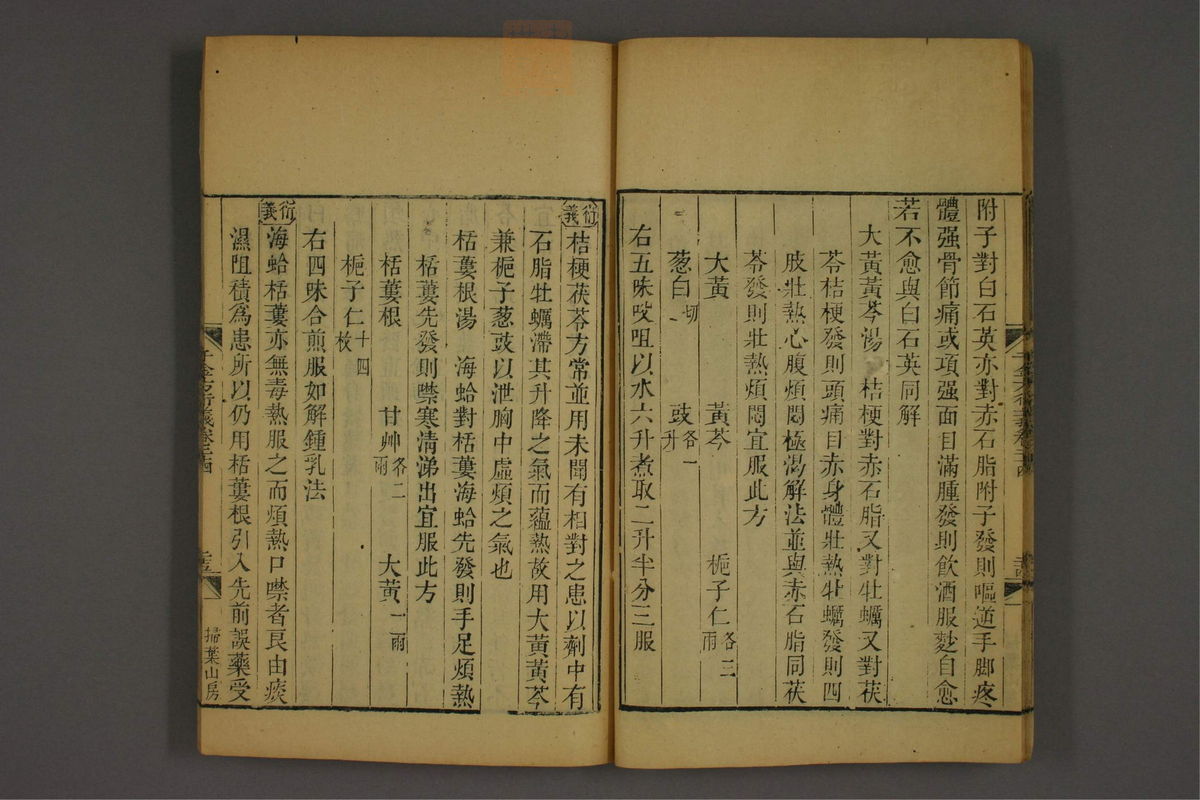 附子對白石英亦對赤石脂附子發則嘔逆手脚疼
體强骨節痛或項强面目滿腫發則飮酒服麨自愈
若不愈與白石英同解
大黃黃芩湯　桔梗對赤石脂又對牡蠣又對茯
苓桔梗發則頭痛目赤身體壯熱牡蠣發則四
肢壯熱心腹煩悶極渴解法並與赤石脂同茯
苓發則壯熱煩悶宜服此方
大黃　黃芩　梔子仁各三兩
葱白切　豉各一升
右五味㕮咀以水六升煮取二升半分三服
衍義 桔梗茯苓方常並用未聞有相對之患以劑中有
石脂牡蠣滯其升降之氣而蘊熱故用大黃黃芩
兼梔子葱豉以泄胸中虛煩之氣也
栝蔞根湯　海蛤對栝蔞海蛤先發則手足煩熱
栝蔞先發則噤寒淸涕出宜服此方
栝蔞根　甘艸各二兩　大黃一兩
梔子仁十四枚
右四味合煎服如解鍾乳法
衍義 海蛤栝蔞亦無毒熱服之而煩熱口噤者良由痰
濕阻積爲患所以仍用栝蔞根引入先前誤藥受
千金方衍義卷二十四
掃葉山房